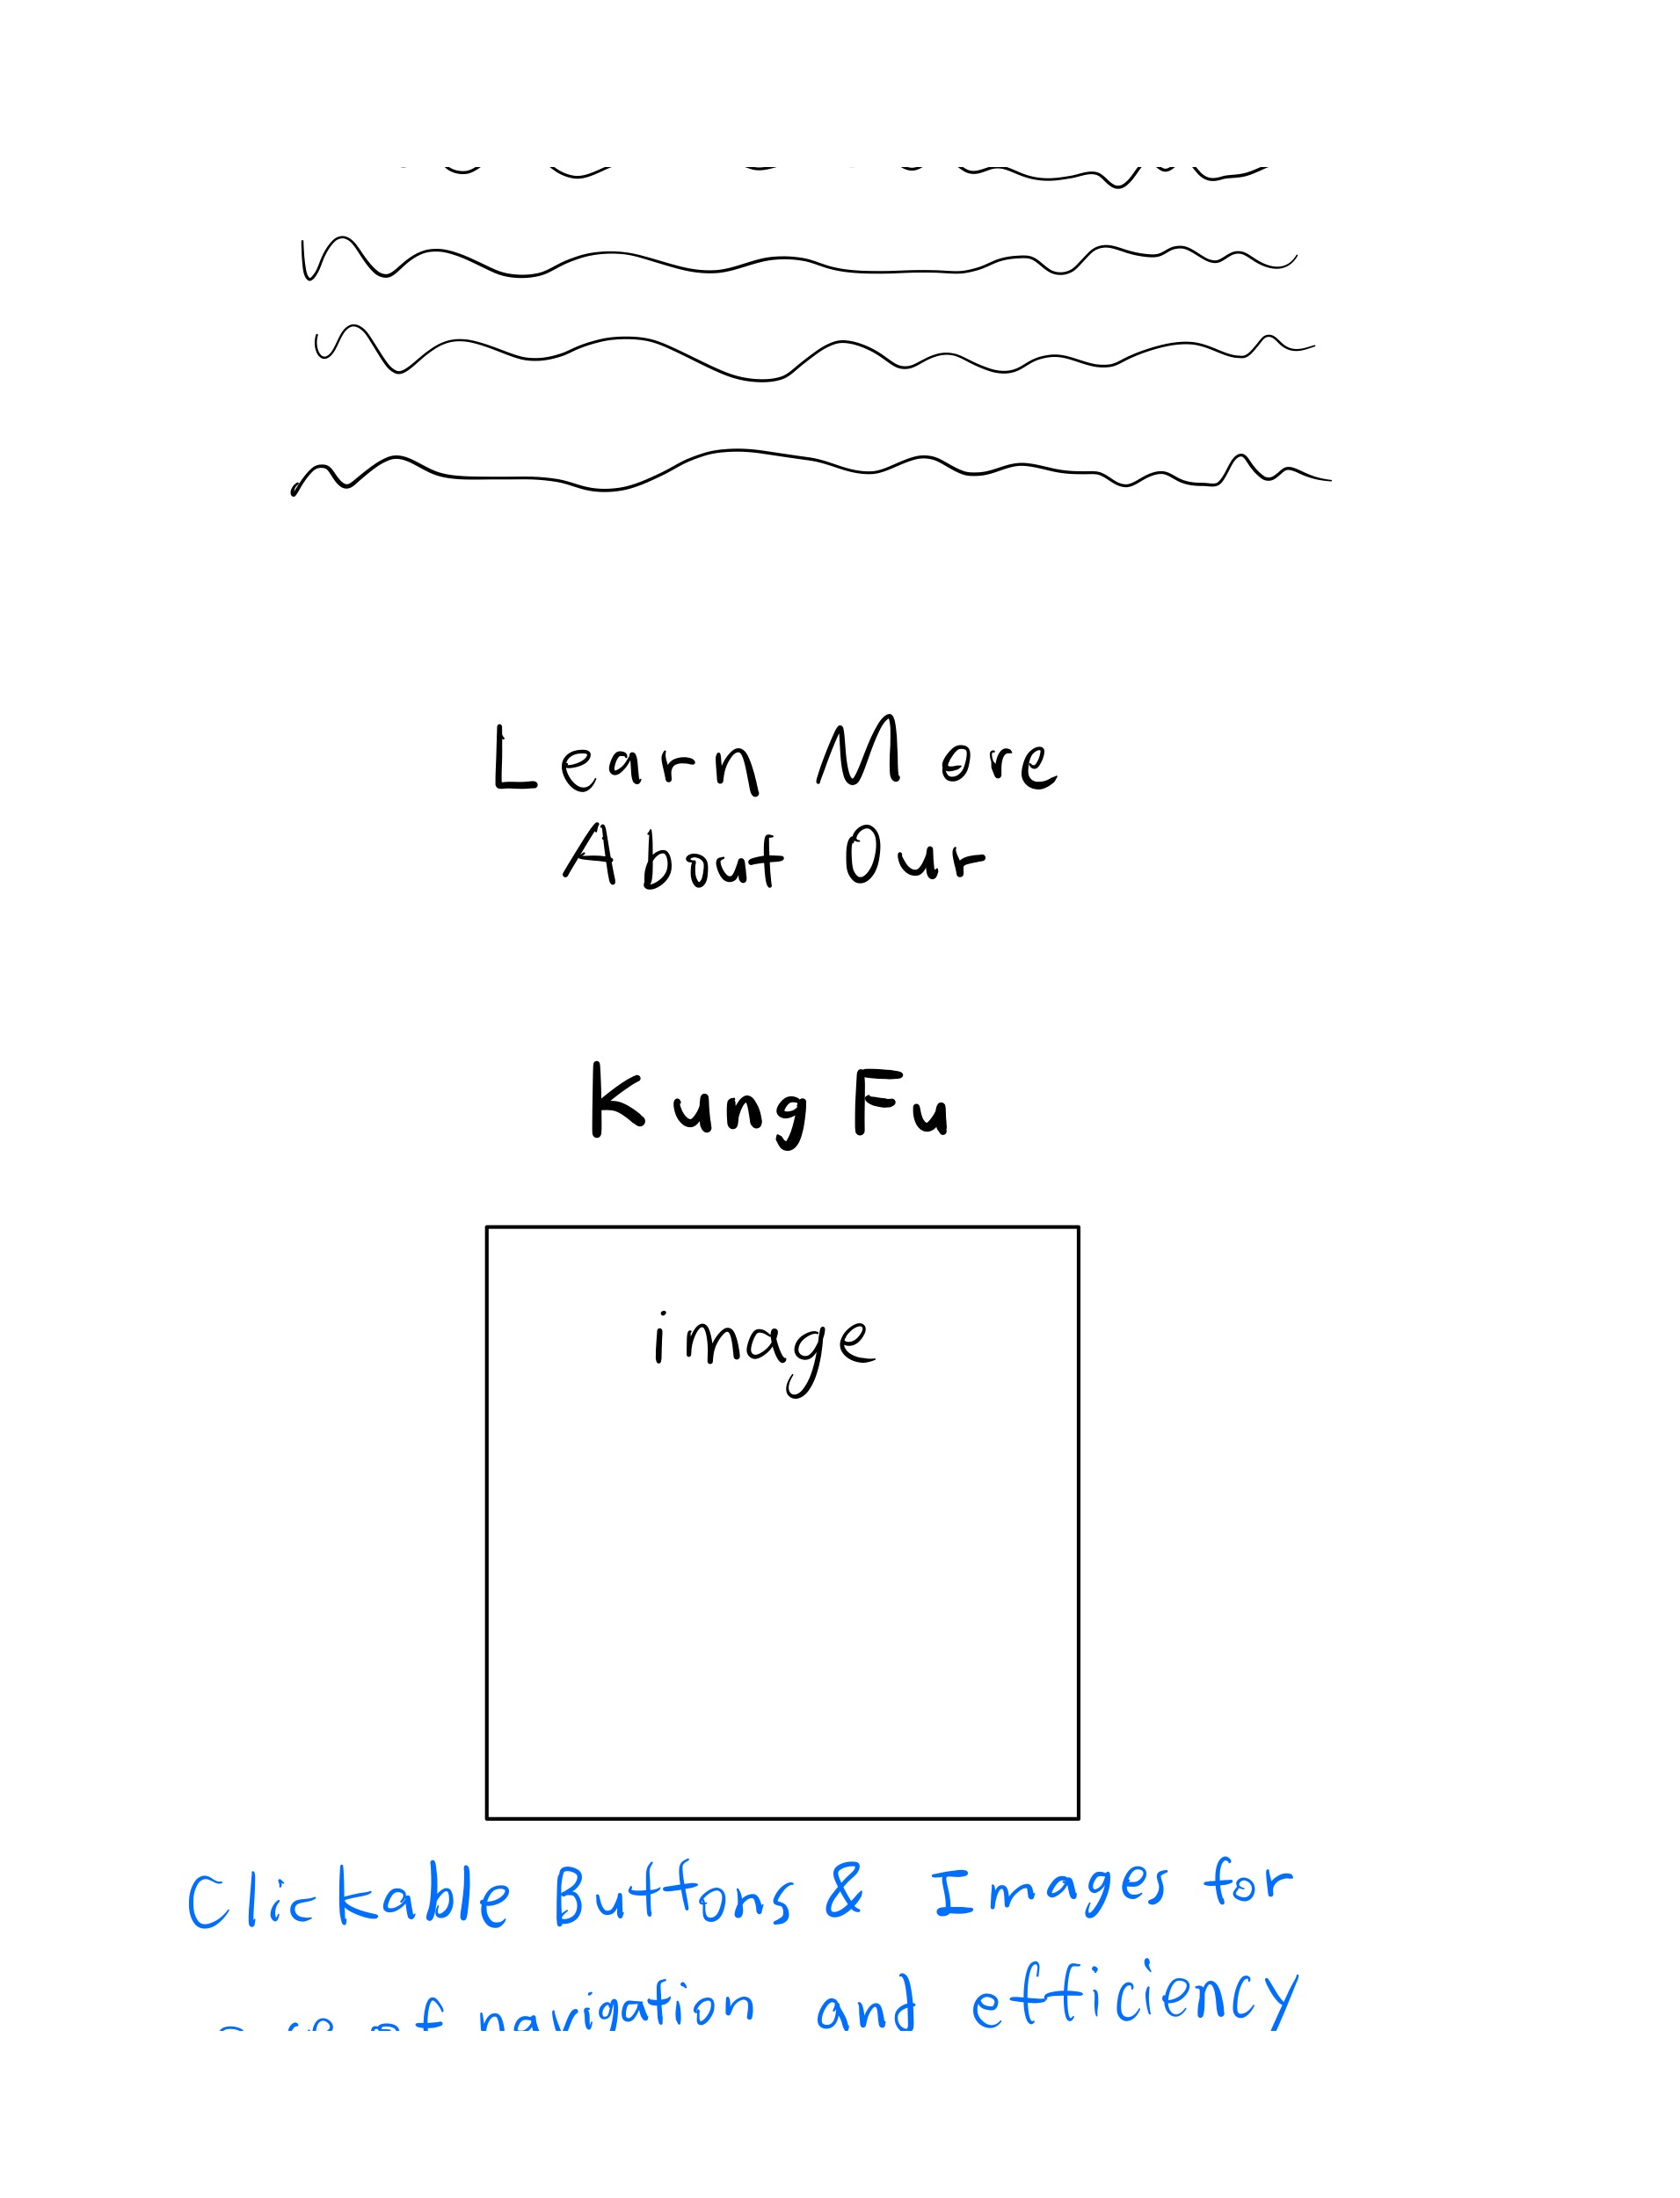 Learn More
About Our
Kung Fu
image
Clickable Buttons & Images for
of navigation and efficiency